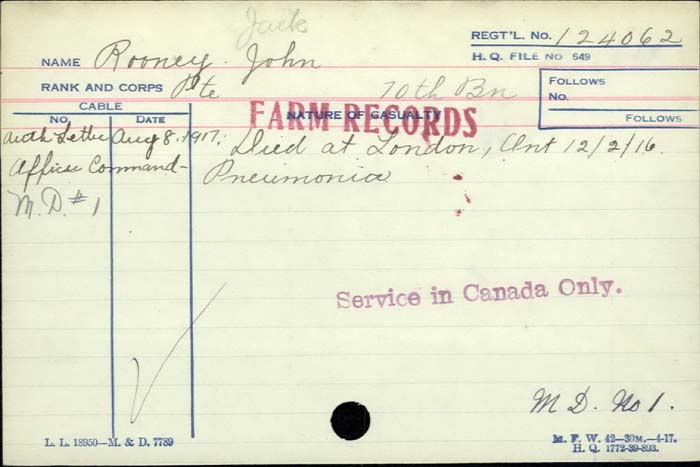 Jack
REGT'L. No. 124062
NAME Rooney John
H. Q. FILE NO 649
RANK AND CORPS Pte 70th Bn
FOLLOWS
No.
FOLLOWS
CABLE
No. DATE
NATURE OF CASUALTY
FARM RECORDS
Auth Letter Aug 8. 1917. Died at London, Ont 12/2/16.
Officer Command- Pneumonia
M.D. #1
Service in Canada Only.
M. D. No 1.
L. L. 18950—M. & D. 7789
M. F. W. 42—30M.—4-17.
H. Q. 1772-39-893.